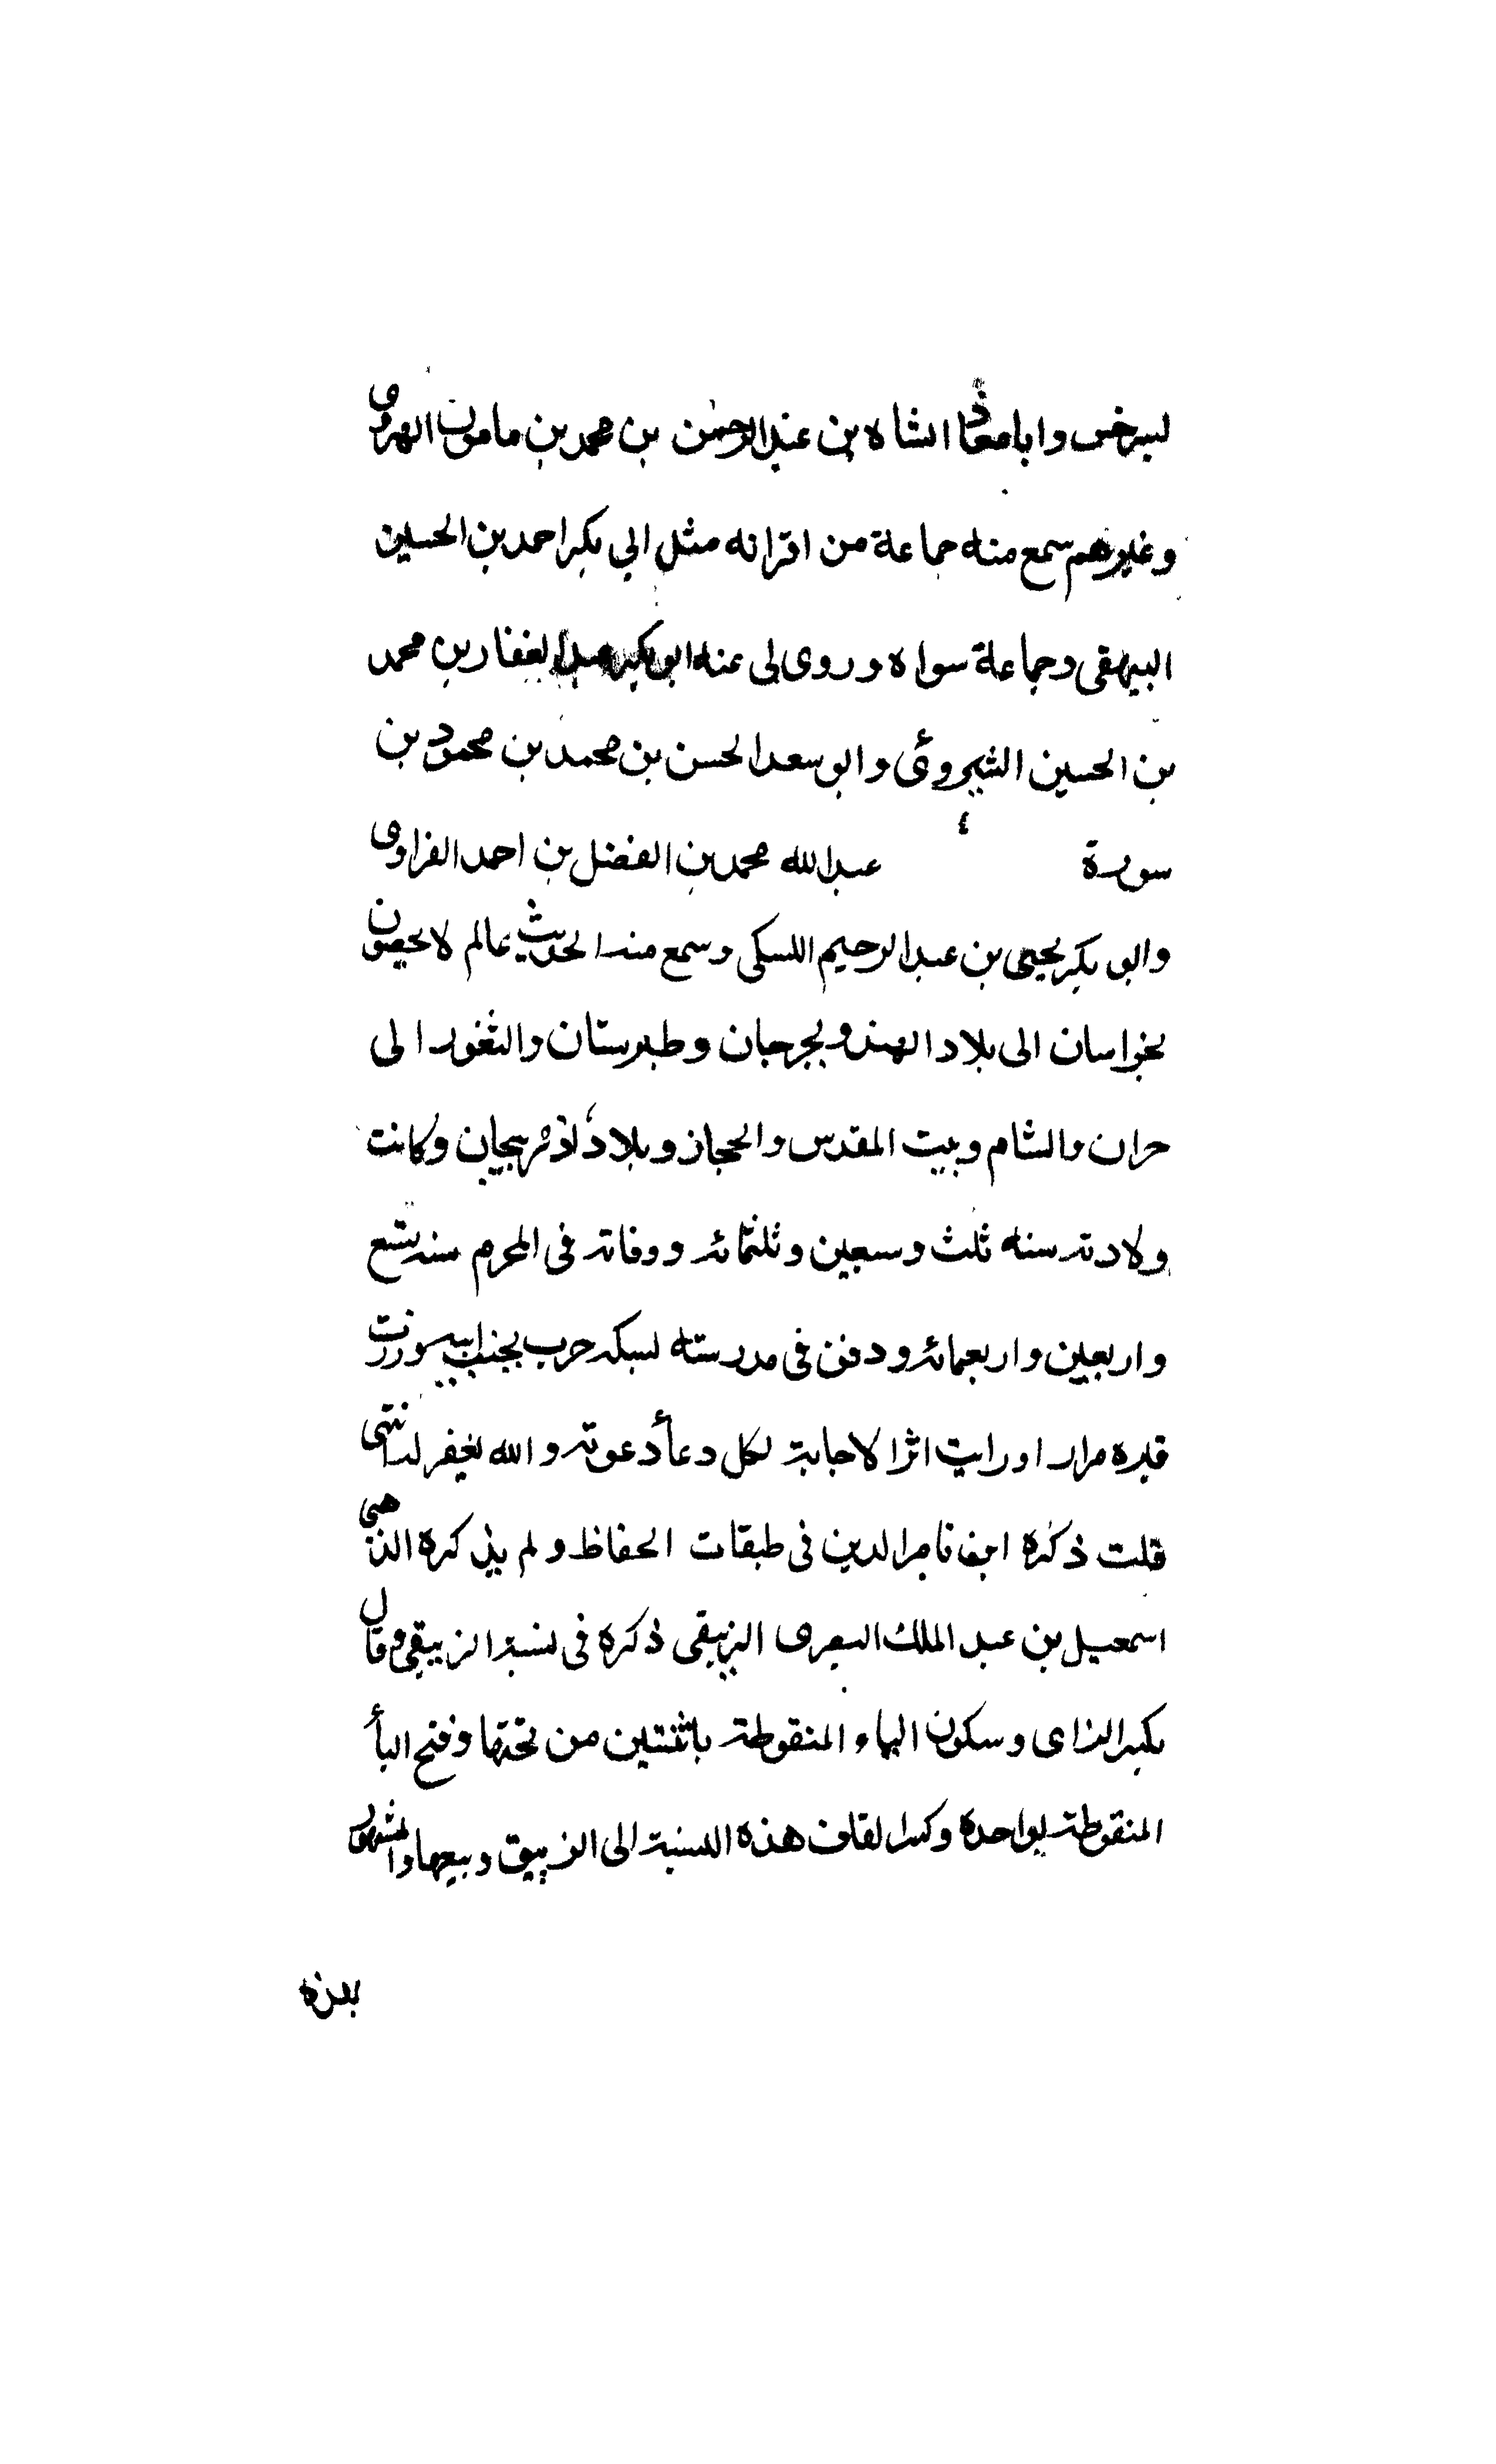 لسرخس وابا معاذ الشاه بن عبدالرحمن بن محمد بن مامون الهروى
وغيرهم سمع منه جماعة من اقرانه مثل ابي بكر احمد بن الحسين
البيهقى وجماعة سواه وروى لى عنه ابو بكر عبد الغفار بن محمد
بن الحسين الشيروئى وابو سعد الحسن بن محمد بن محمود بن
سورة عبدالله محمد بن الفضل بن احمد الفراوى
وابو بكر يحيى بن عبد الرحيم اللسكى وسمع منه الحديث عالم لا يحصون
بخراسان الى بلاد الهند وبجرجان وطبرستان والثغور الى
حران والشام وبيت المقدس والحجاز وبلاد اذربيجان وكانت
ولادته سنه ثلث وسبعين وثلثمائه ووفاته فى المحرم سنه تسع
واربعين واربعمائه ودفن فى مدرسته لسكه حرب بجنب ابيه وزرت
قبره مرارا ورايت اثر الاجابة لكل دعأ دعوته والله يغفر له انتهى
قلت ذكره ابن ناصر الدين فى طبقات الحفاظ ولم يذكره الذهبى
اسمعيل بن عبد الملك البصرى الزيبقى ذكره فى نسبة الزيبقى وقال
بكسر الزاى وسكون الياء المنقوطة باثنتين من تحتها وفتح البأ
المنقوطة بواحدة وكسر القاف هذه النسبة الى الزيبق وبيعها والمشهور
بهذه